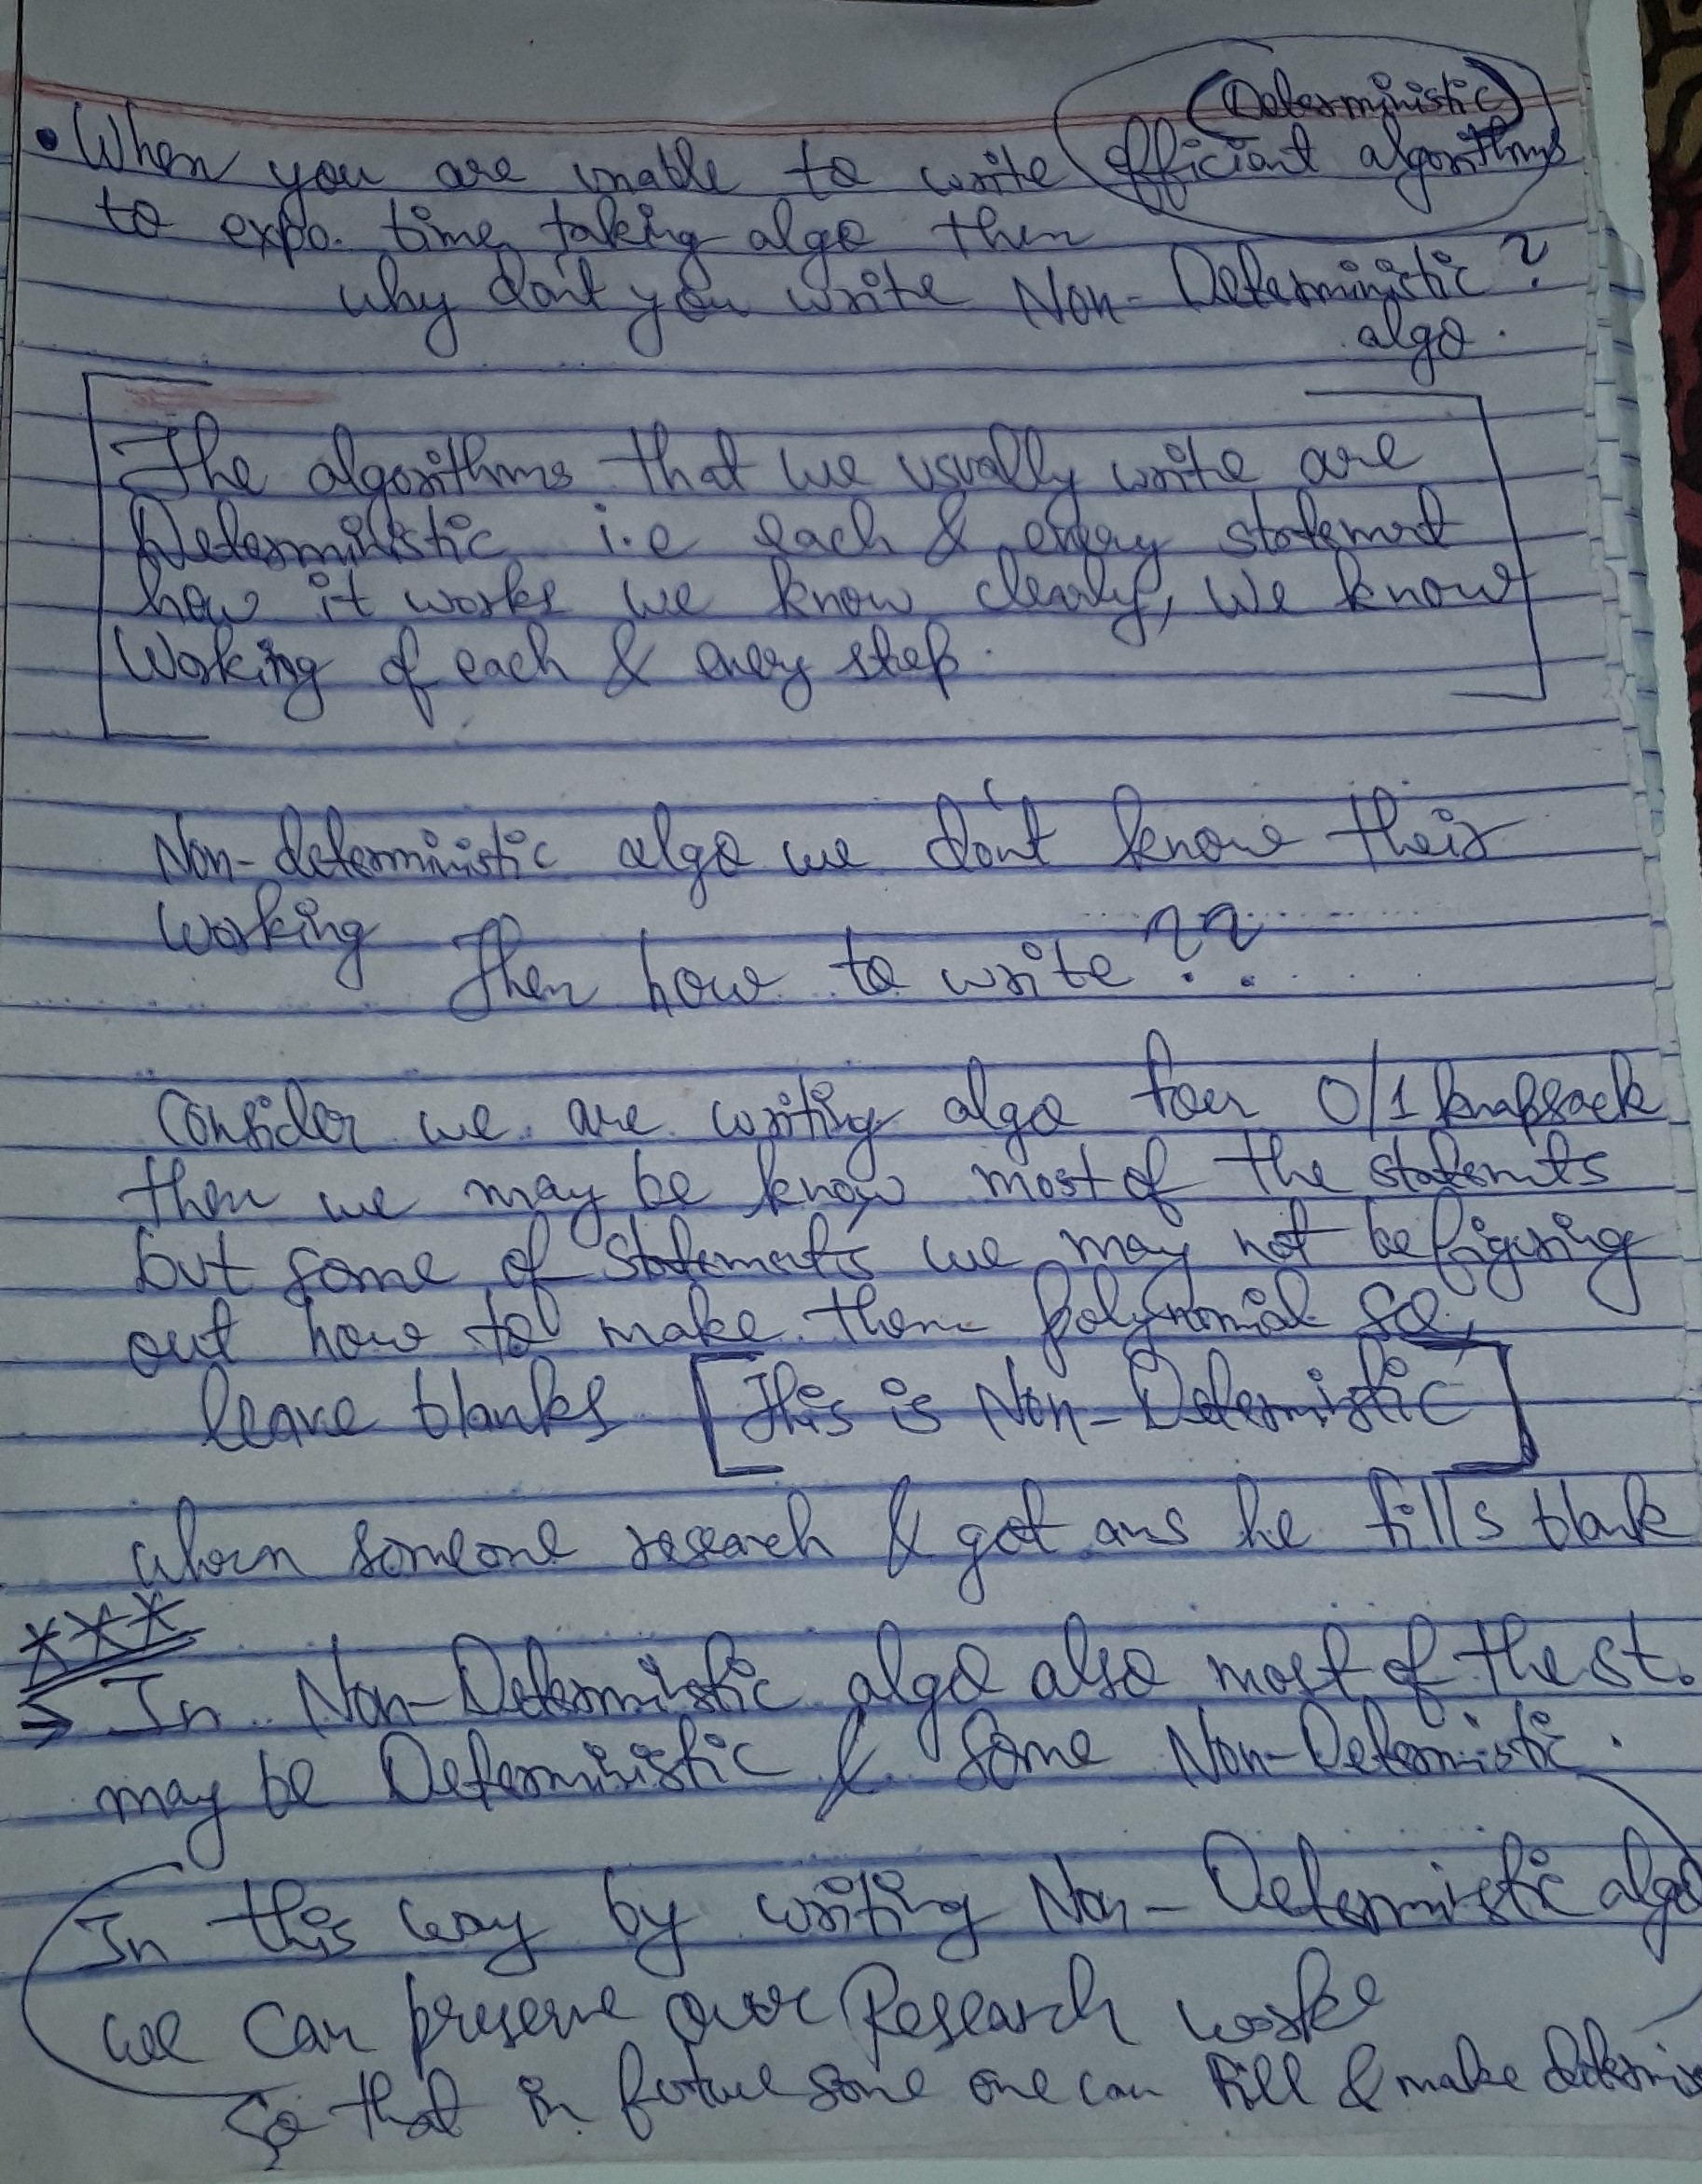 (Deterministic)
• When you are unable to write efficient algorithms
to expo. time taking algo then
why don't you write Non-Deterministic ?
algo.
The algorithms that we usually write are
Deterministic i.e each & every statement
how it works we know clearly, We know
Working of each & every step.
Non-deterministic algo we don't know their
working
Then how to write ??
Consider we are writing algo for 0/1 knapsack
then we may be know most of the statemnts
but some of statements we may not be figuring
out how to make them polynomial so,
leave blanks [This is Non-Determistic]
when someone research & got ans he fills blank
***
→ In Non-Determistic algo also most of the st.
may be Deterministic & some Non-Determistic.
In this way by writing Non-Determistic algo
we can preserve our Research work
So that in future some one can fill & make